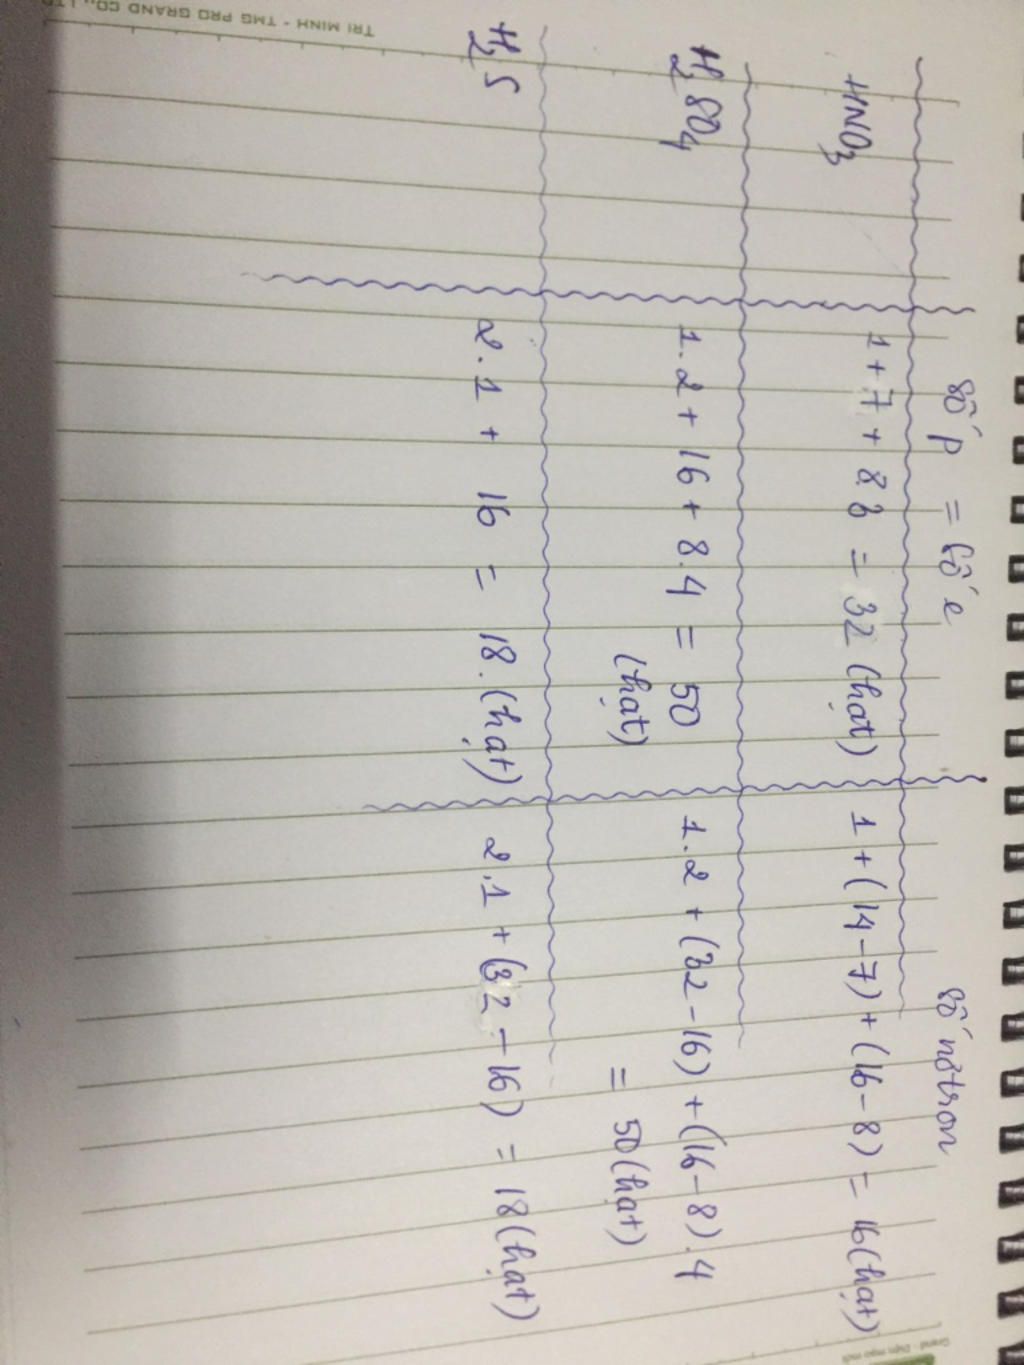 số p = số e
số nơtron
HNO3
1 + 7 + 8.3 = 32 (hạt)
1 + (14 - 7) + (16 - 8) = 16 (hạt)
H2SO4
1.2 + 16 + 8.4 = 50
(hạt)
1.2 + (32 - 16) + (16 - 8).4
= 50 (hạt)
H2S
2.1 + 16 = 18.(hạt)
2.1 + (32 - 16) = 18 (hạt)
TRI MINH - TMG PRO GRAND CO., LTD